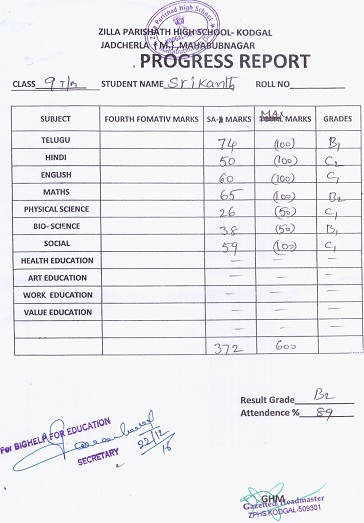 Zilla Parishad High School
ZILLA PARISHATH HIGH SCHOOL- KODGAL
JADCHERLA ( M ) ,MAHABUBNAGAR
PROGRESS REPORT
CLASS 9 T/M STUDENT NAME Srikanth ROLL NO
SUBJECT FOURTH FOMATIV MARKS SA- MARKS MAX MARKS GRADES
TELUGU 74 (100) B1
HINDI 50 (100) C2
ENGLISH 60 (100) C1
MATHS 65 (100) B2
PHYSICAL SCIENCE 26 (50) C1
BIO- SCIENCE 38 (50) B1
SOCIAL 59 (100) C1
HEALTH EDUCATION — — —
ART EDUCATION — — —
WORK EDUCATION — — —
VALUE EDUCATION — — —
— — —
372 600
Result Grade B2
Attendence % 89
For BIGHELP FOR EDUCATION
22/12
16
SECRETARY
GHM
Gazetted Headmaster
ZPHS KODGAL-509301